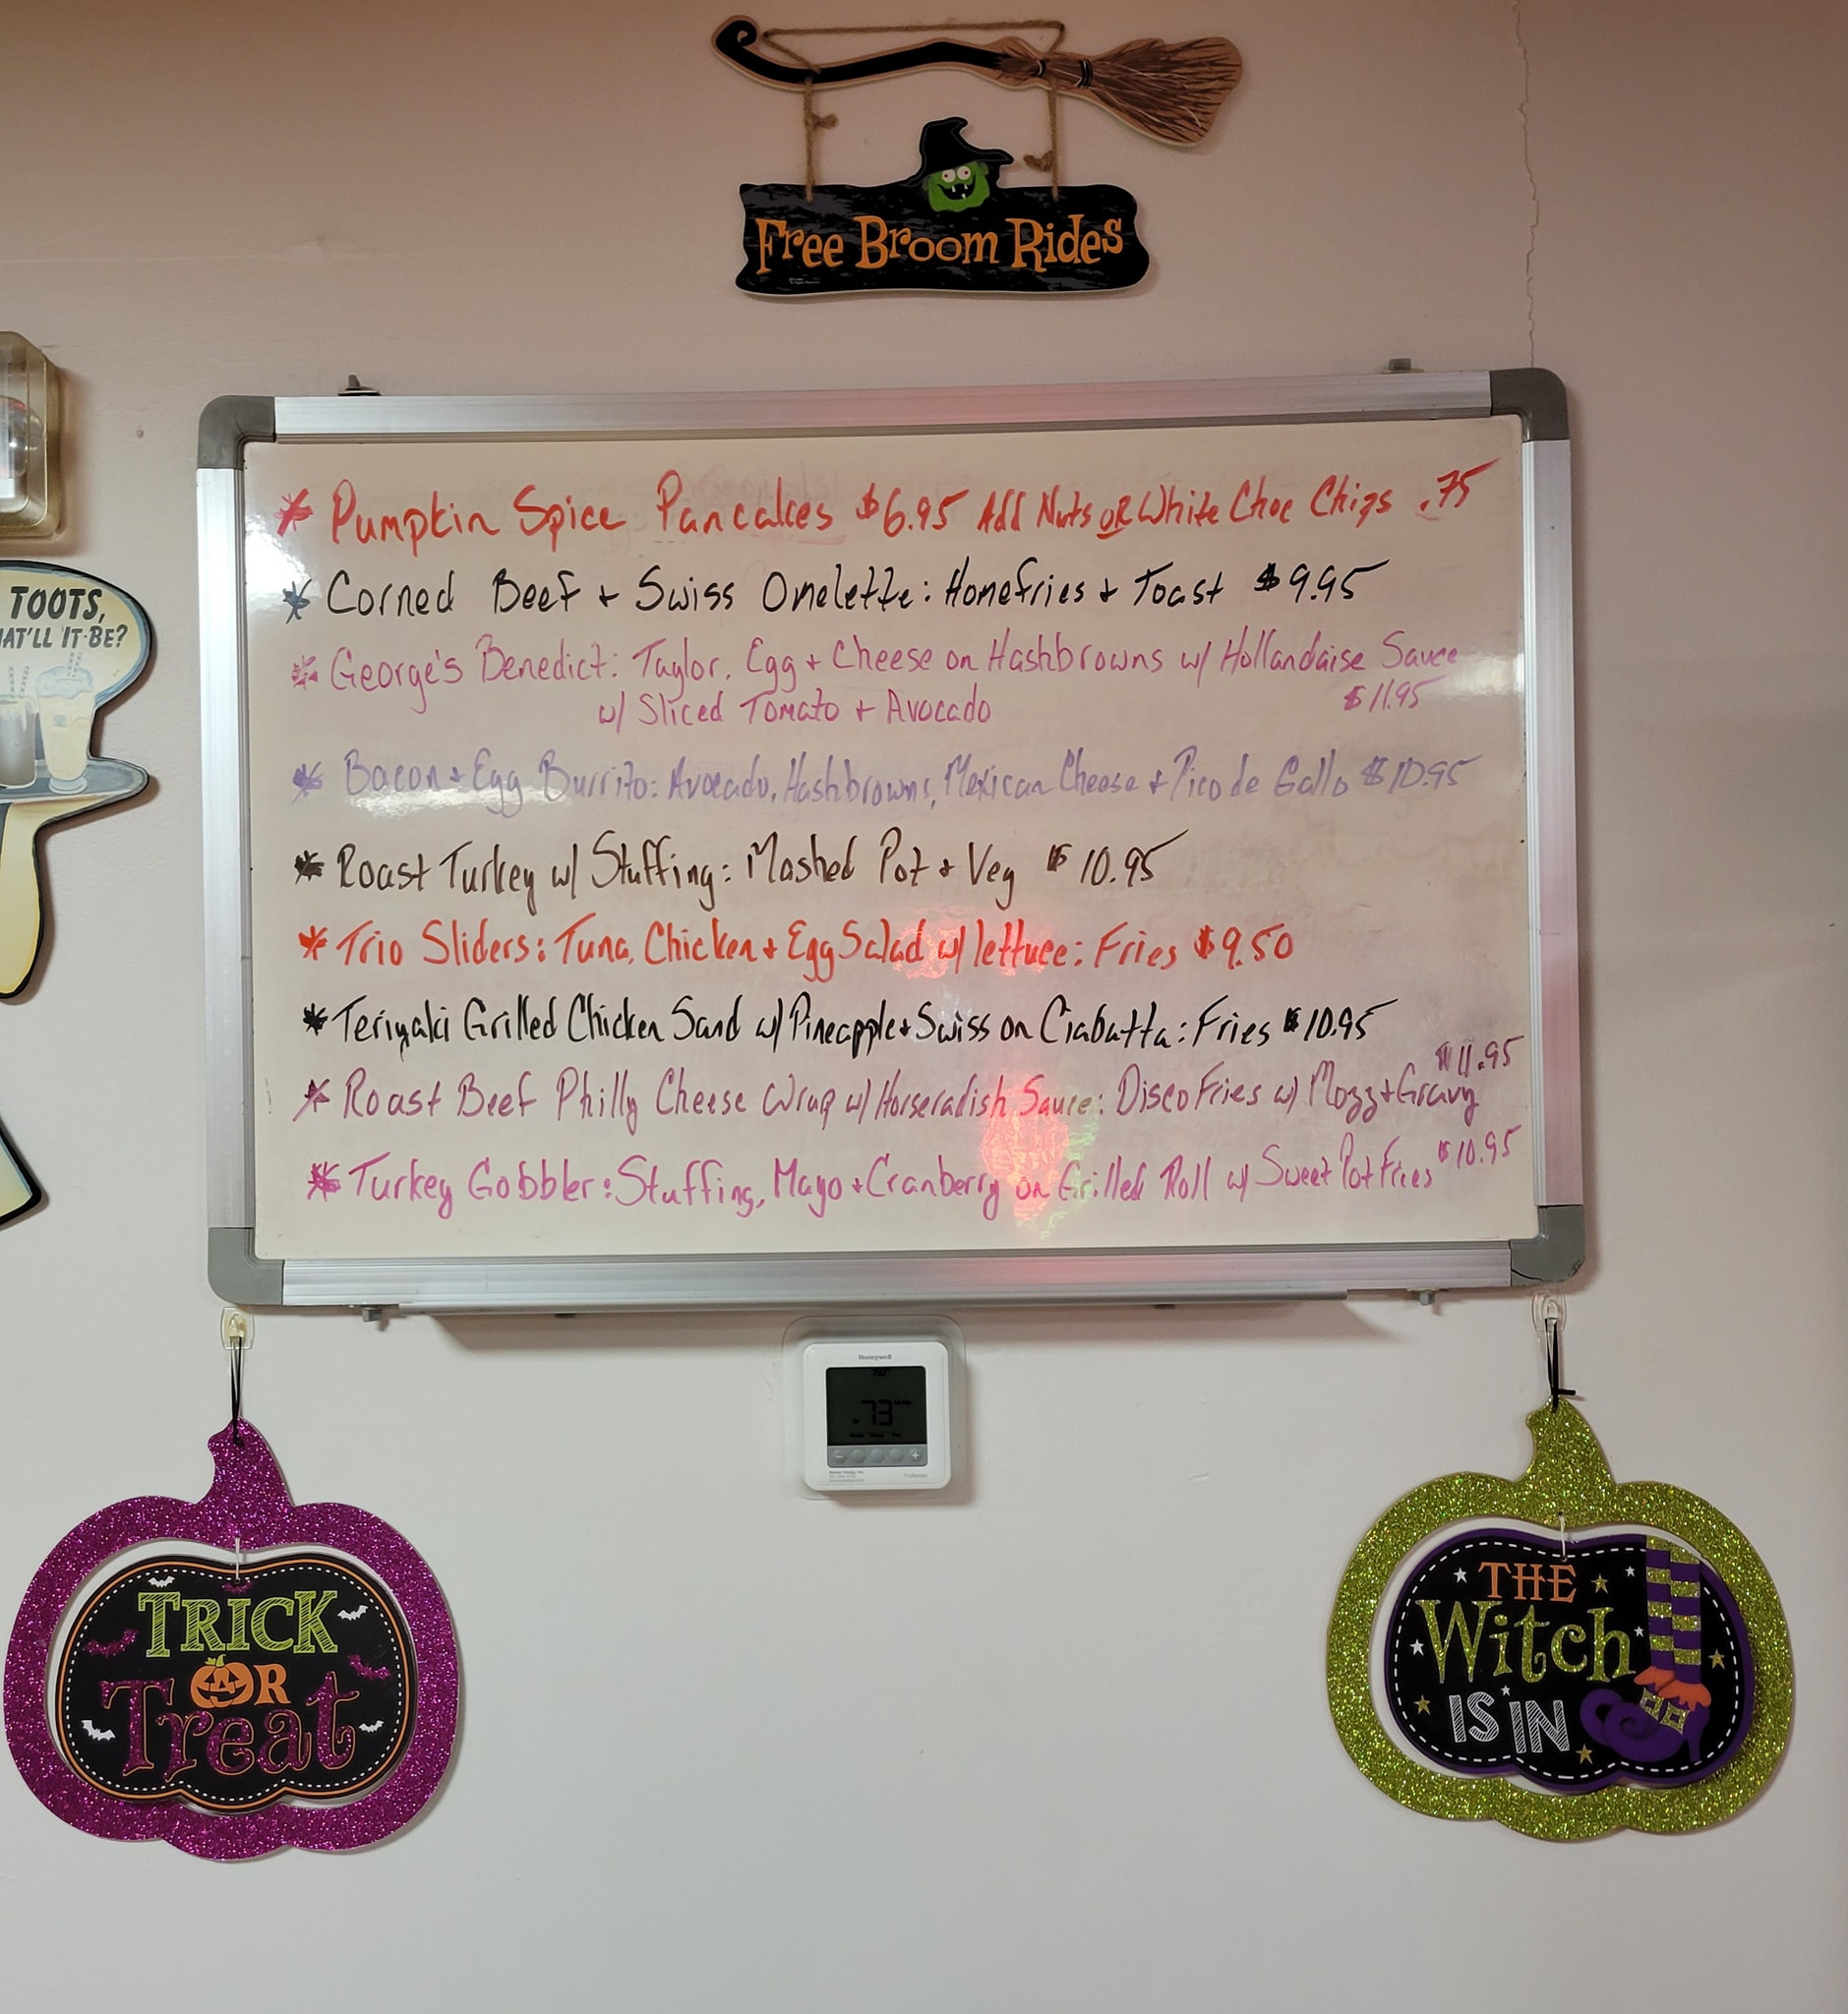 Free Broom Rides
TOOTS,
AT'LL IT BE?
* Pumpkin Spice Pancakes $6.95 Add Nuts OR White Choc Chips .75
* Corned Beef + Swiss Omelette: Homefries + Toast $9.95
* George's Benedict: Taylor, Egg + Cheese on Hashbrowns w/ Hollandaise Sauce
w/ Sliced Tomato + Avocado $11.95
* Bacon + Egg Burrito: Avocado, Hashbrowns, Mexican Cheese + Pico de Gallo $10.95
* Roast Turkey w/ Stuffing: Mashed Pot + Veg $10.95
* Trio Sliders: Tuna, Chicken + Egg Salad w/ lettuce: Fries $9.50
* Teriyaki Grilled Chicken Sand w/ Pineapple + Swiss on Ciabatta: Fries $10.95
* Roast Beef Philly Cheese Wrap w/ Horseradish Sauce: Disco Fries w/ Mozz + Gravy $11.95
* Turkey Gobbler: Stuffing, Mayo + Cranberry on Grilled Roll w/ Sweet Pot Fries $10.95
Honeywell
73
TRICK
OR
Treat
THE
Witch
IS IN